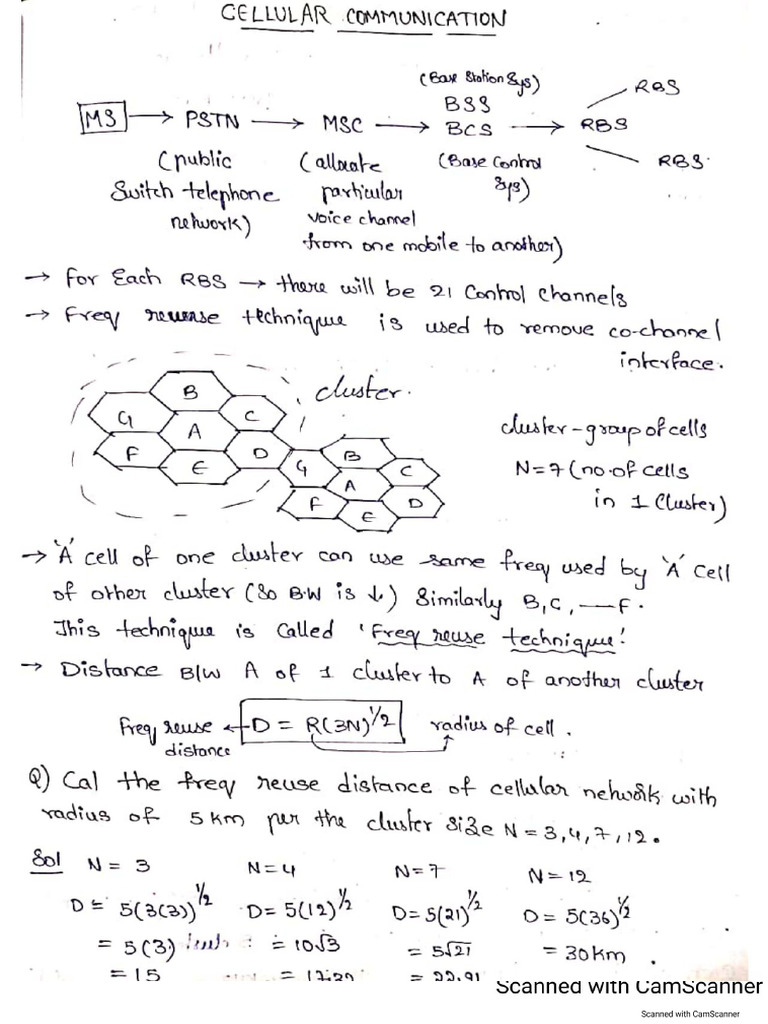 CELLULAR COMMUNICATION
(Base Station Sys)
BSS
RBS
MS → PSTN → MSC → BCS → RBS
RBS
(public
Switch telephone
network)
(allocate
particular
voice channel
from one mobile to another)
(Base Control
Sys)
→ For Each RBS → there will be 21 Control Channels
→ Freq reuse technique is used to remove co-channel
interface.
cluster.
B
G
C
A
F
D
E
B
G
C
A
F
D
E
cluster - group of cells
N=7 (no. of cells
in 1 cluster)
→ 'A' cell of one cluster can use same freq used by 'A' cell
of other cluster (So B.W is ↓) Similarly B, C, — F.
This technique is called 'Freq reuse technique!
→ Distance B/W A of 1 cluster to A of another cluster
Freq reuse distance ← D = R(3N)^1/2 radius of cell.
Q) Cal the freq reuse distance of cellular network with
radius of 5 km per the cluster size N = 3, 4, 7, 12.
Sol N = 3 N=4 N=7 N=12
D = 5(3(3))^1/2 D= 5(12)^1/2 D= 5(21)^1/2 D= 5(36)^1/2
= 5(3) = 10√3 = 5√21 = 30km.
= 15 = 22.91
Scanned with CamScanner
Scanned with CamScanner